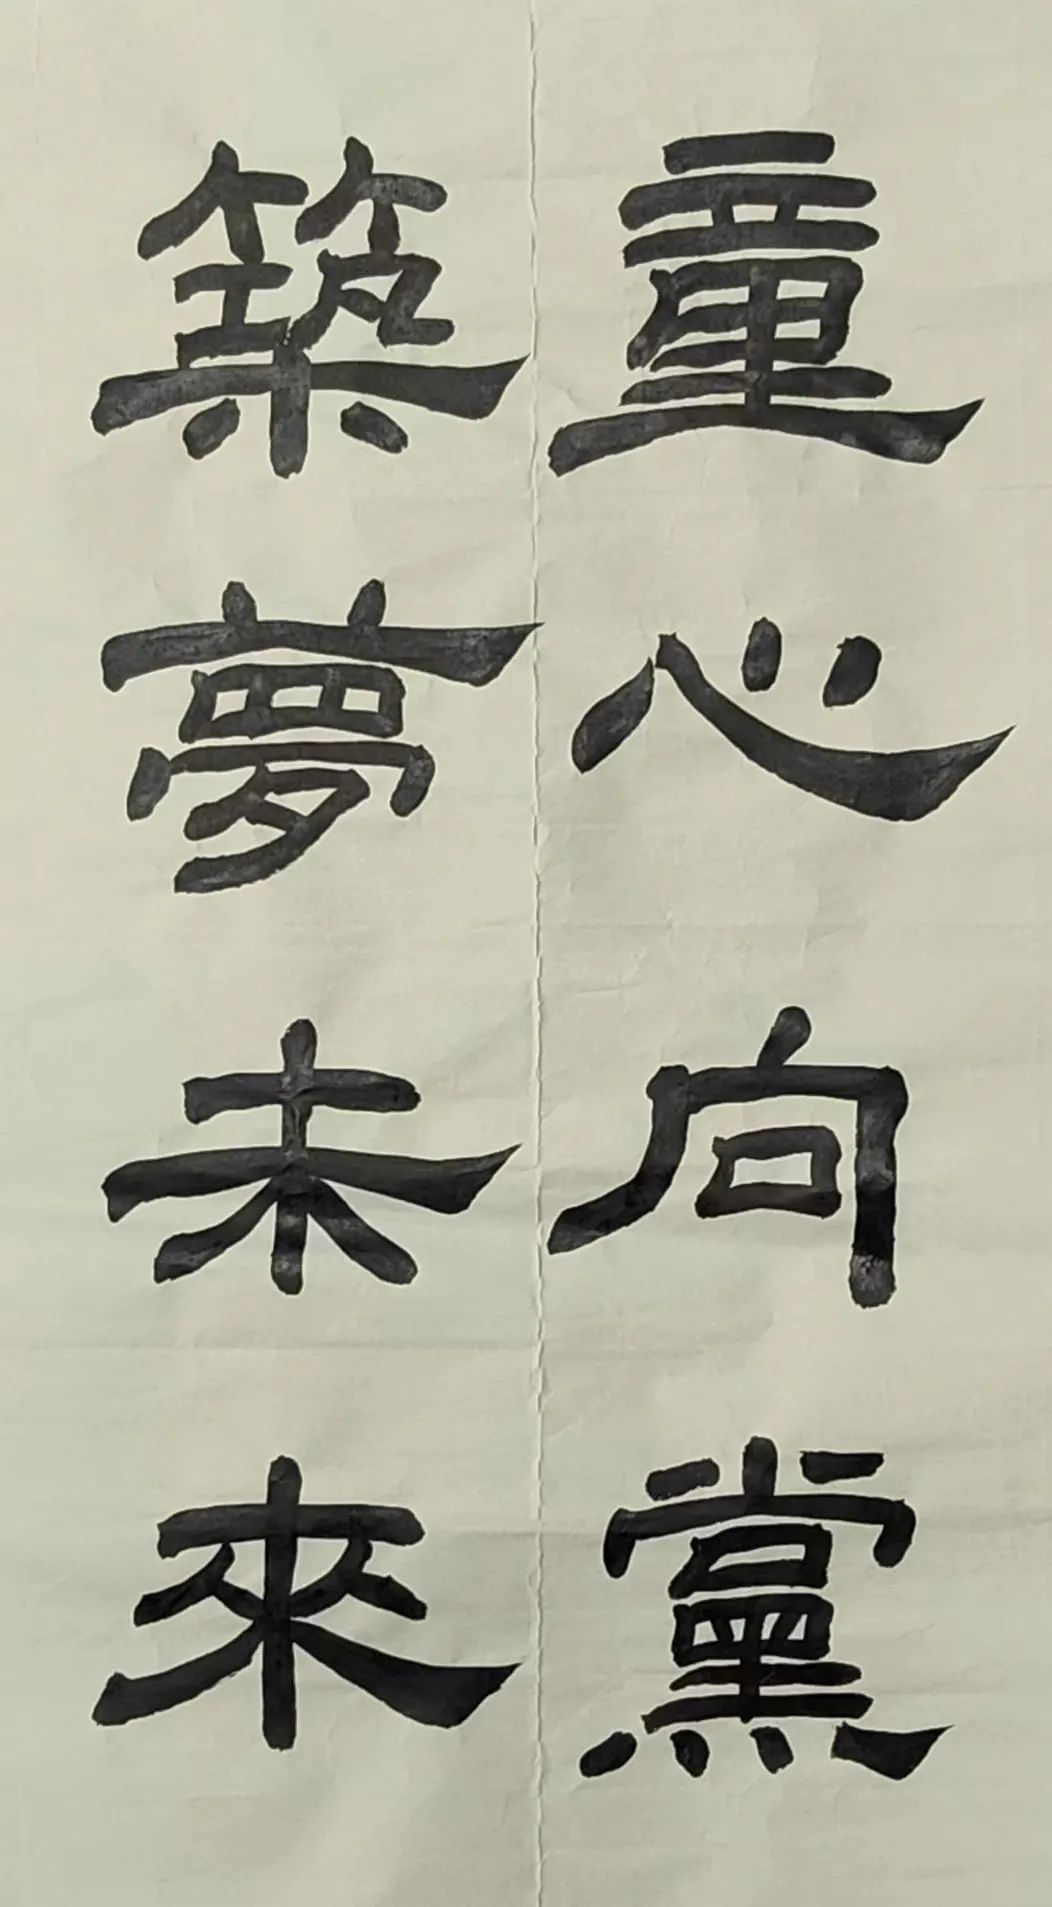 童心向黨
築夢未來